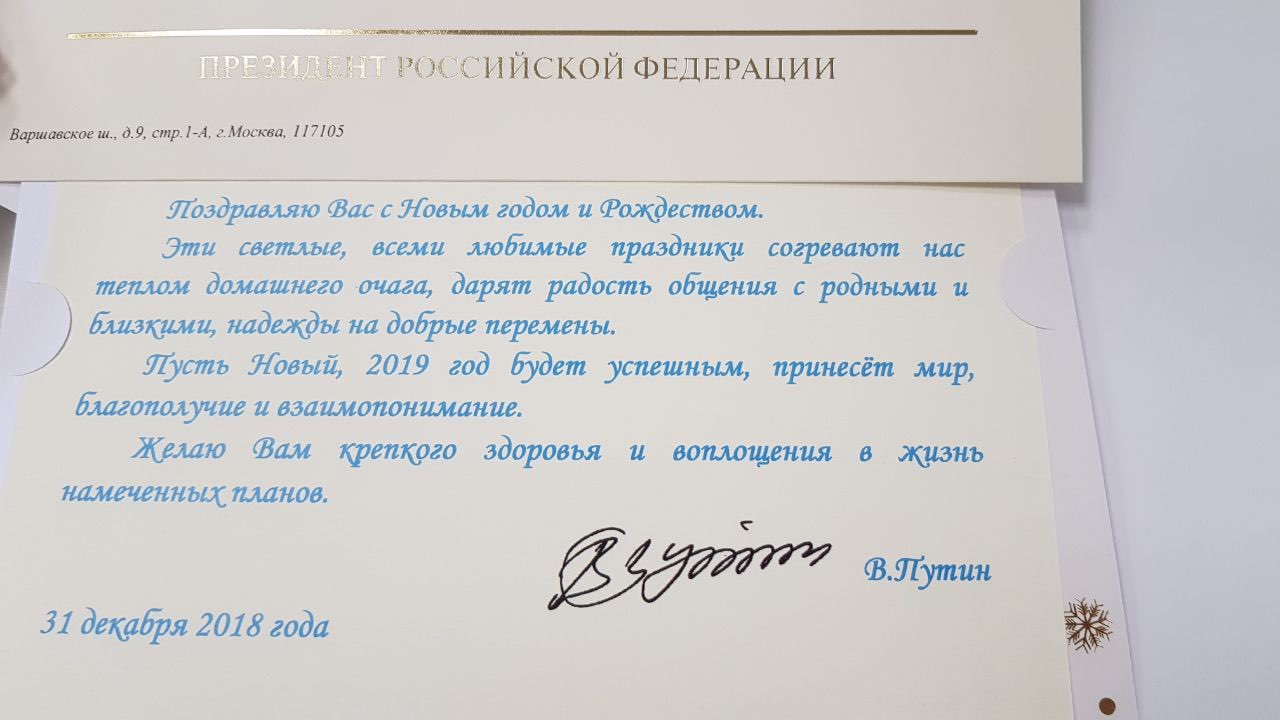 ПРЕЗИДЕНТ РОССИЙСКОЙ ФЕДЕРАЦИИ
Варшавское ш., д.9, стр.1-А, г.Москва, 117105
Поздравляю Вас с Новым годом и Рождеством.
Эти светлые, всеми любимые праздники согревают нас
теплом домашнего очага, дарят радость общения с родными и
близкими, надежды на добрые перемены.
Пусть Новый, 2019 год будет успешным, принесёт мир,
благополучие и взаимопонимание.
Желаю Вам крепкого здоровья и воплощения в жизнь
намеченных планов.
В.Путин
31 декабря 2018 года